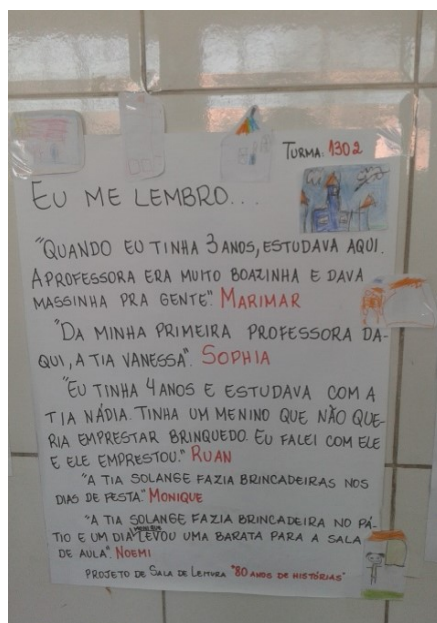 TURMA: 1302
EU ME LEMBRO...
"QUANDO EU TINHA 3 ANOS, ESTUDAVA AQUI.
A PROFESSORA ERA MUITO BOAZINHA E DAVA
MASSINHA PRA GENTE". MARIMAR
"DA MINHA PRIMEIRA PROFESSORA DA-
QUI, A TIA VANESSA". SOPHIA
"EU TINHA 4 ANOS E ESTUDAVA COM A
TIA NÁDIA. TINHA UM MENINO QUE NÃO QUE-
RIA EMPRESTAR BRINQUEDO. EU FALEI COM ELE
E ELE EMPRESTOU." RUAN
"A TIA SOLANGE FAZIA BRINCADEIRAS NOS
DIAS DE FESTA." MONIQUE
"A TIA SOLANGE FAZIA BRINCADEIRA NO PÁ-
TIO E UM DIA LEVOU UMA BARATA PARA A SALA
DE AULA". NOEMI
PROJETO DE SALA DE LEITURA "80 ANOS DE HISTÓRIAS"